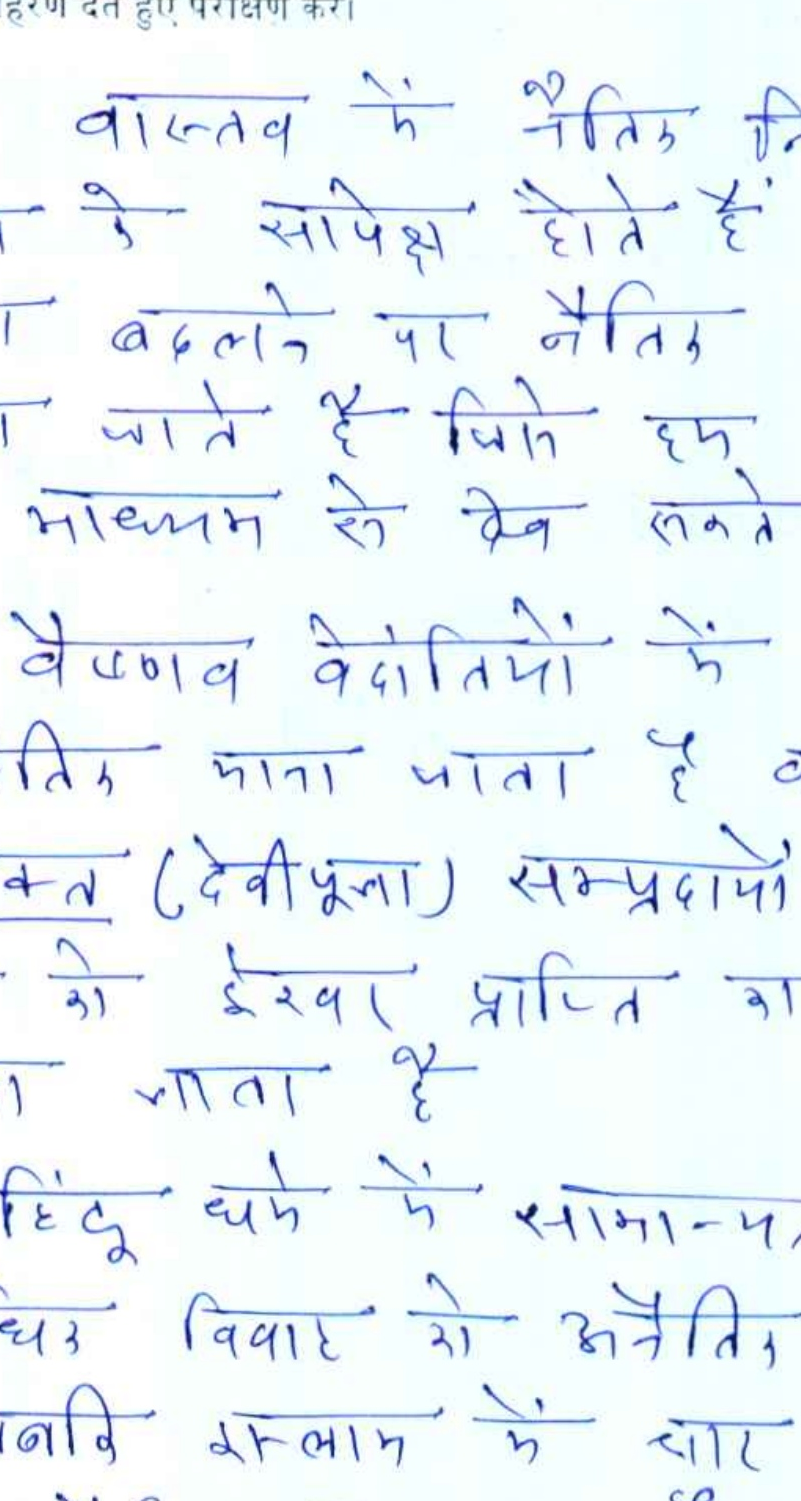 हरण देते हुए परीक्षण करो
वास्तव में नैतिक नि
के सापेक्ष होते हैं
बदलने पर नैतिक
जाते है जिसे हम
माध्यम से देख सकते
वैष्णव वेदांतियों में
तिक माना जाता है व
क्त (देवीपूजा) सम्प्रदायों
को ईश्वर प्राप्ति का
जाता है
हिंदू धर्म में सामान्यत
धिक विवाह को अनैतिक
जबकि इस्लाम में चार